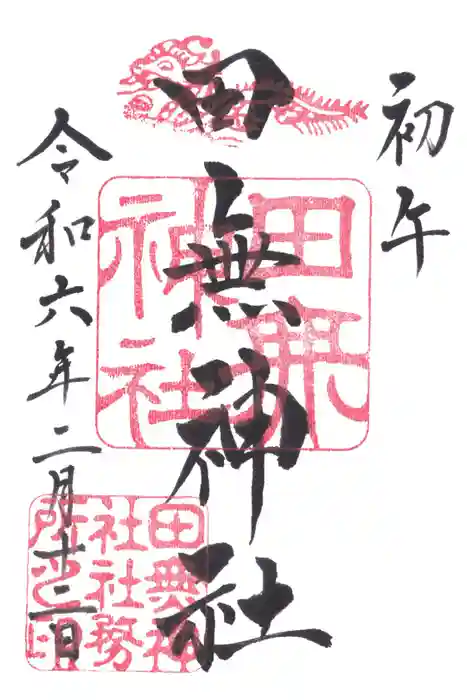 初午
田無神社
令和六年二月十二日
田無
神社
田無神
社社務
所